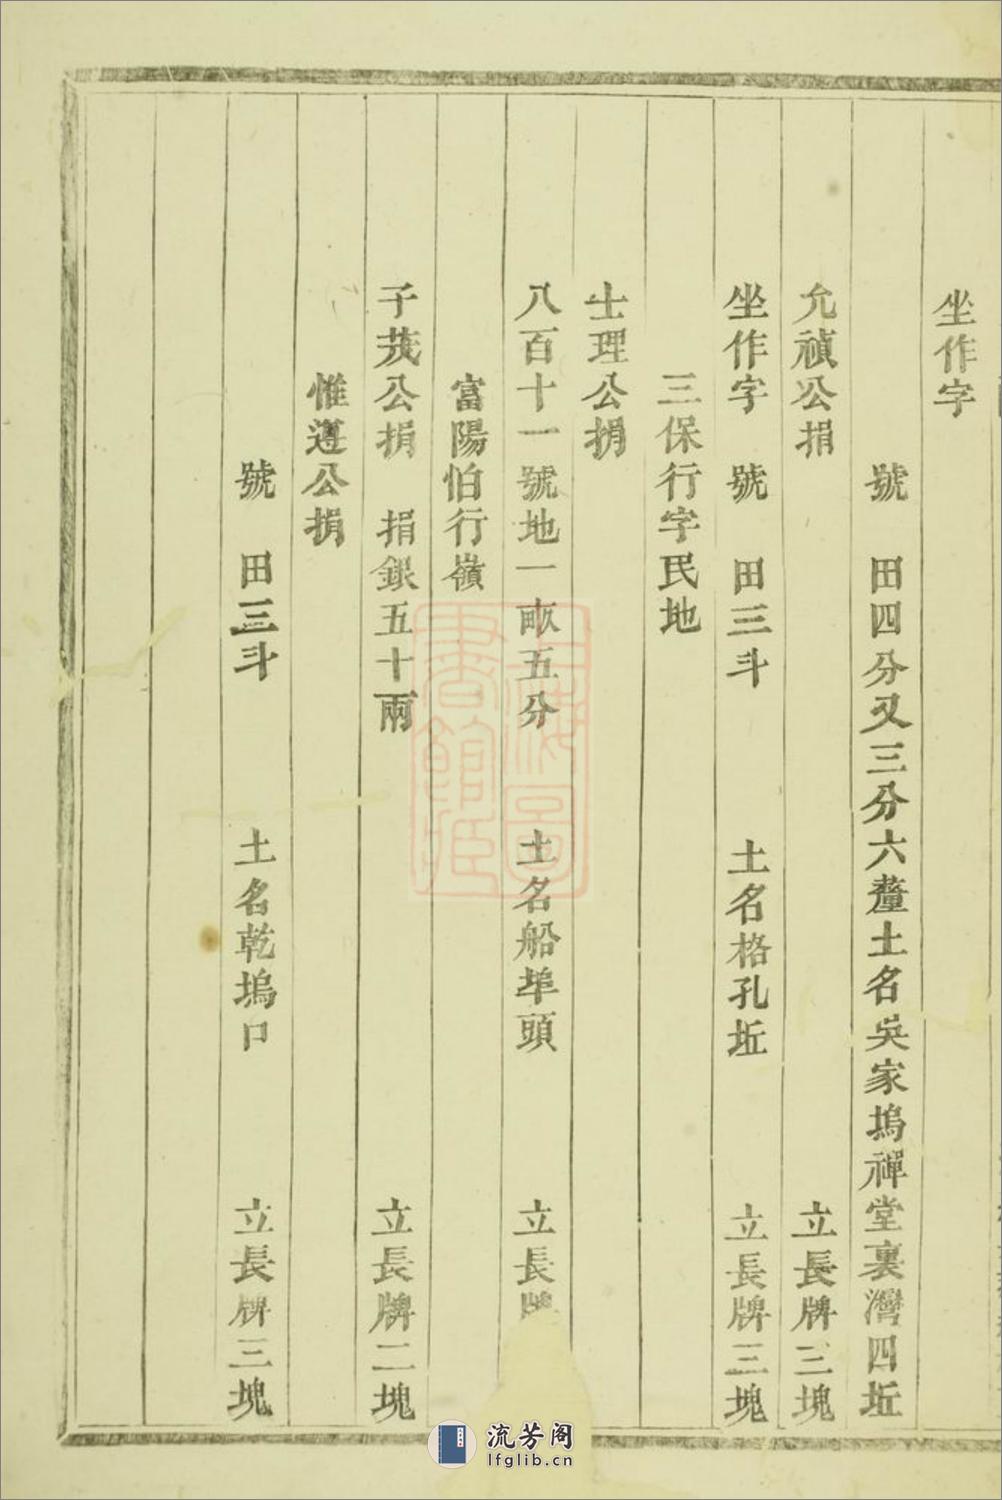 坐作字
號　田四分又三分六釐土名吳家塢禪堂裏灣四坵
允禎公捐　立長牌三塊
坐作字　號　田三斗　土名格孔坵　立長牌三塊
三保行字民地
士理公捐
八百十一號地一畝五分　土名船埠頭　立長牌
富陽怕行嶺
子茂公捐　捐銀五十兩　立長牌二塊
惟遵公捐
號　田三斗　土名乾塢口　立長牌三塊
上海圖書館藏
流芳阁
lfglib.cn